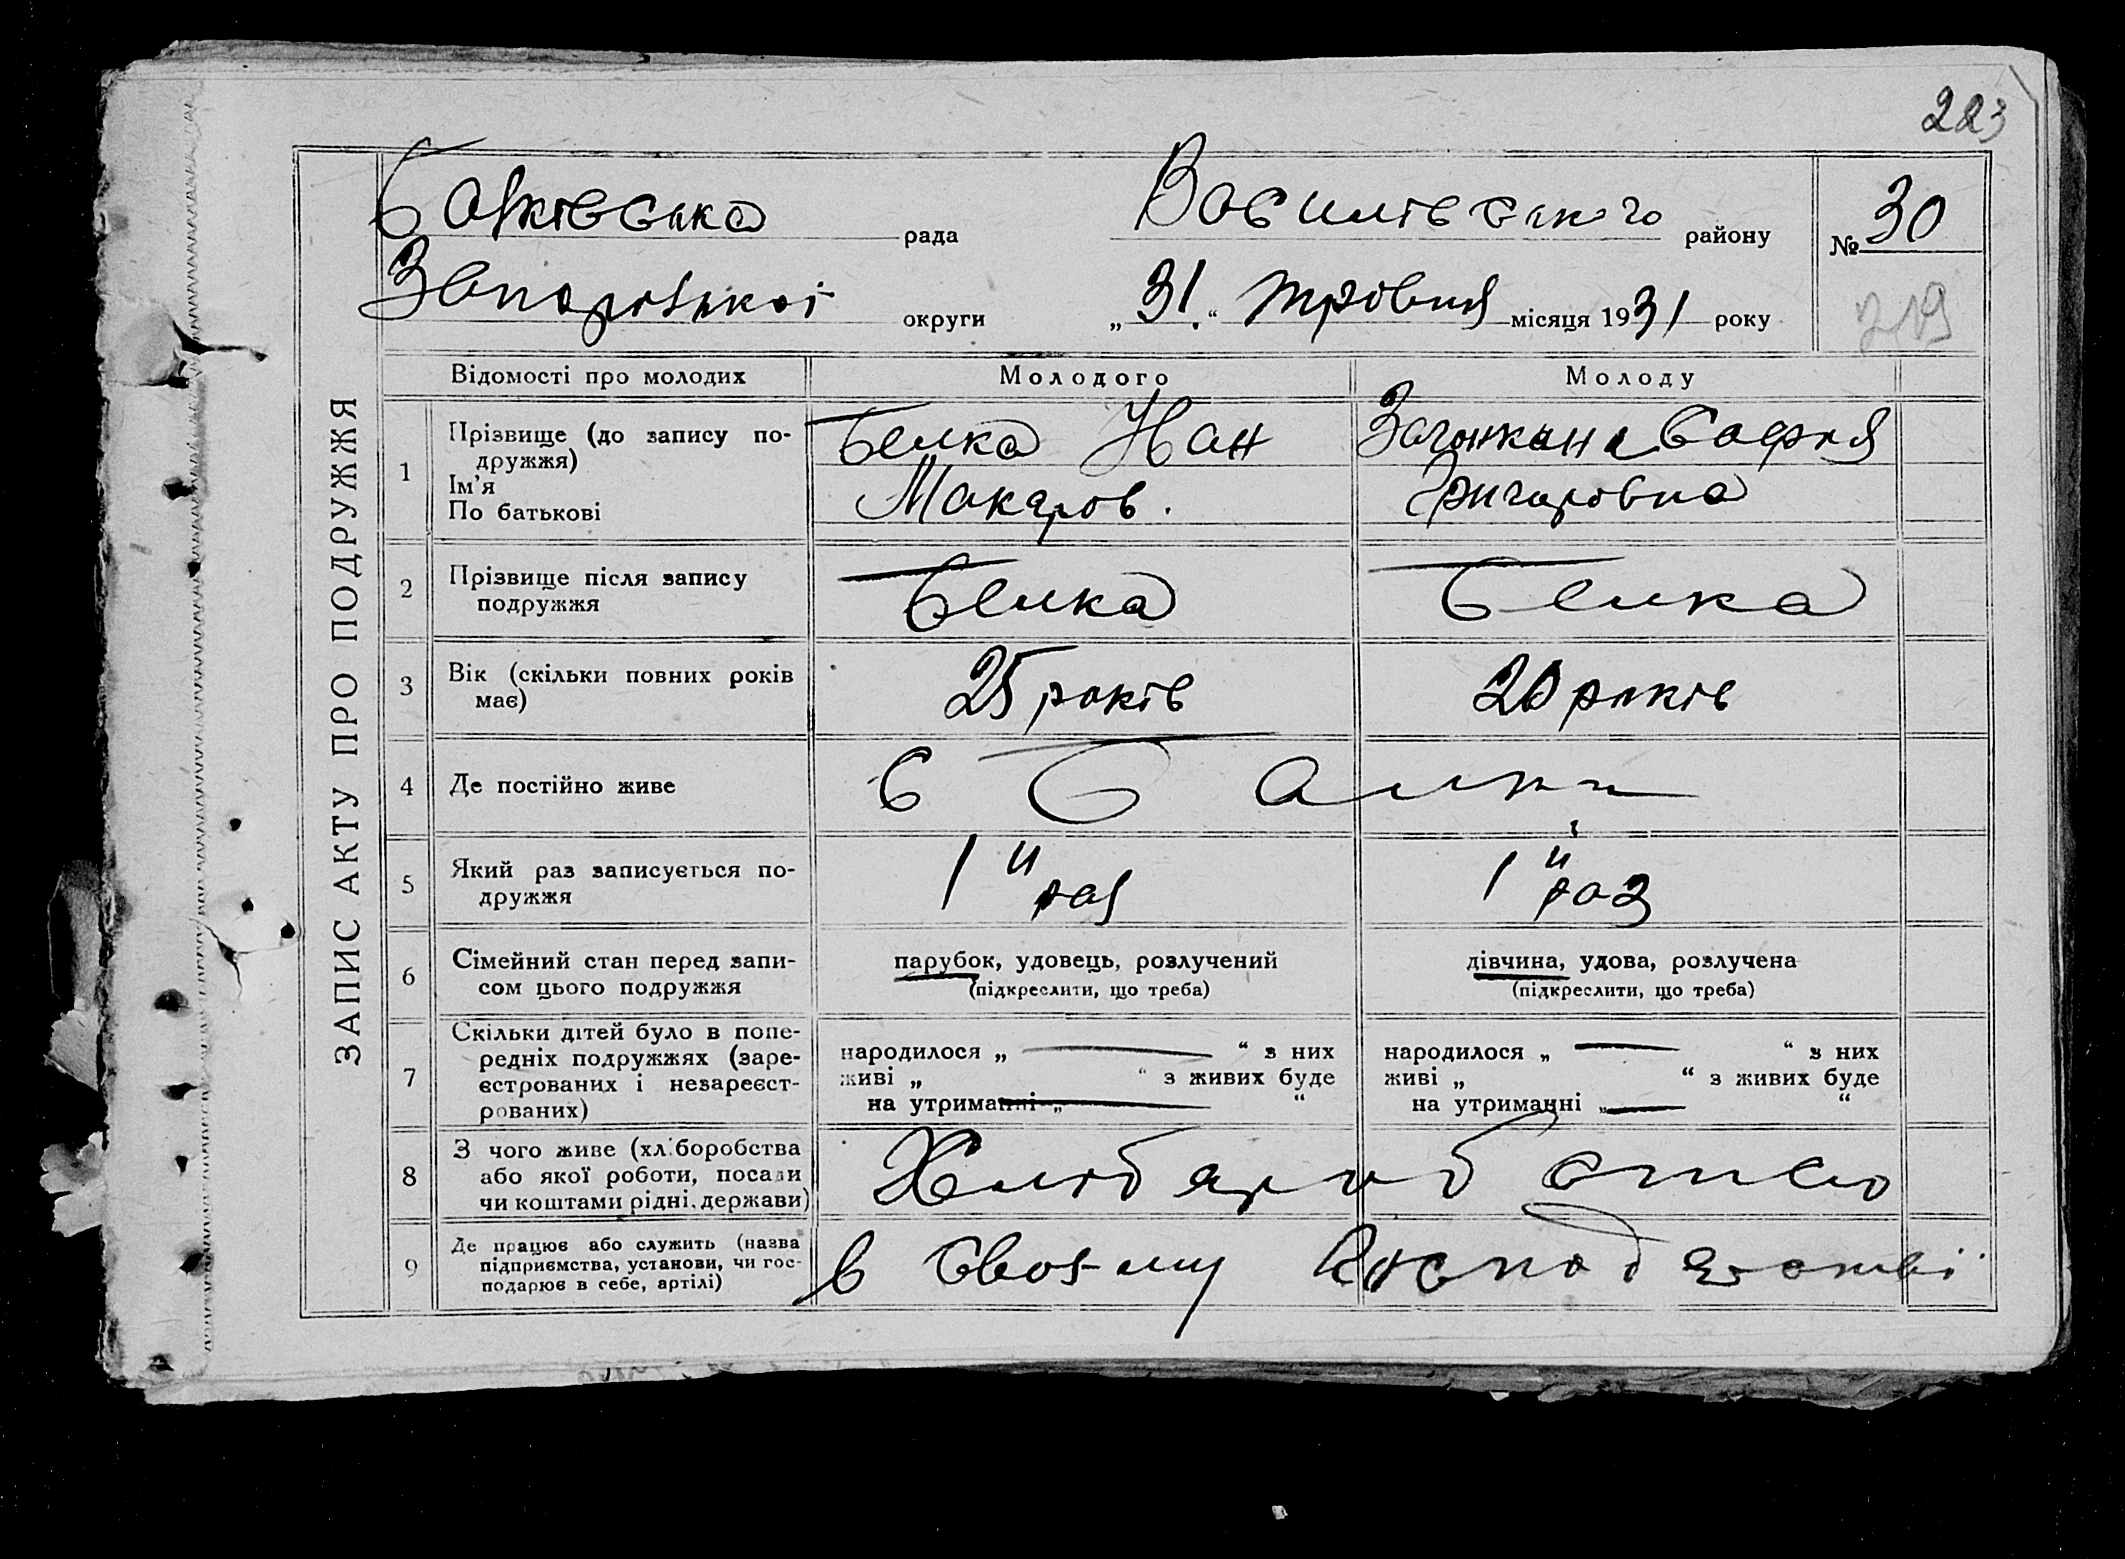 223
Балківська рада Василівського району № 30
Запорізької округи „31.“ травня місяця 1931 року 219
ЗАПИС АКТУ ПРО ПОДРУЖЖЯ
Відомості про молодих Молодого Молоду
1 Прізвище (до запису по-
дружжя)
Ім'я
По батькові
Белка Иван
Макаров.
София
Григоровна
2 Прізвище після запису
подружжя
Белка Белка
3 Вік (скільки повних років
має)
25 років 20 років
4 Де постійно живе
с Балки
5 Який раз записується по-
дружжя
1й раз 1й раз
6 Сімейний стан перед запи-
сом цього подружжя
парубок, удовець, розлучений
(підкреслити, що треба)
дівчина, удова, розлучена
(підкреслити, що треба)
7 Скільки дітей було в попе-
редніх подружжях (заре-
єстрованих і незареєст-
рованих)
народилося „ — “ з них
живі „ “ з живих буде
на утриманні „ — “
народилося „ — “ з них
живі „ “ з живих буде
на утриманні „ — “
8 З чого живе (хліборобства
або якої роботи, посади
чи коштами рідні, держави)
Хлібороб ство
9 Де працює або служить (назва
підприємства, установи, чи гос-
подарює в себе, артілі)
в своєму господарстві